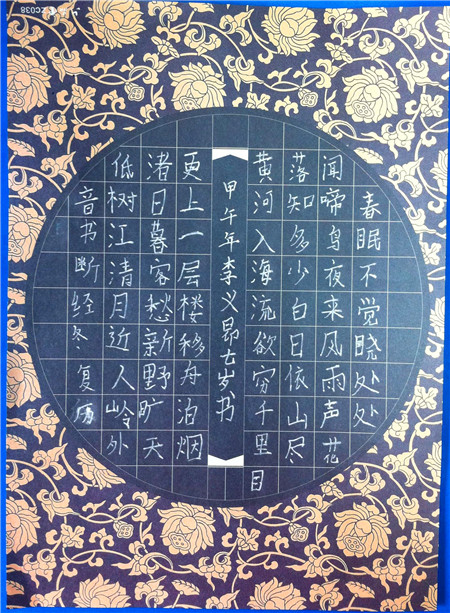 春眠不觉晓处处
闻啼鸟夜来风雨声花
落知多少白日依山尽
黄河入海流欲穷千里目
甲午年李义昂七岁书
更上一层楼移舟泊烟
渚日暮客愁新野旷天
低树江清月近人岭外
音书断经冬复历